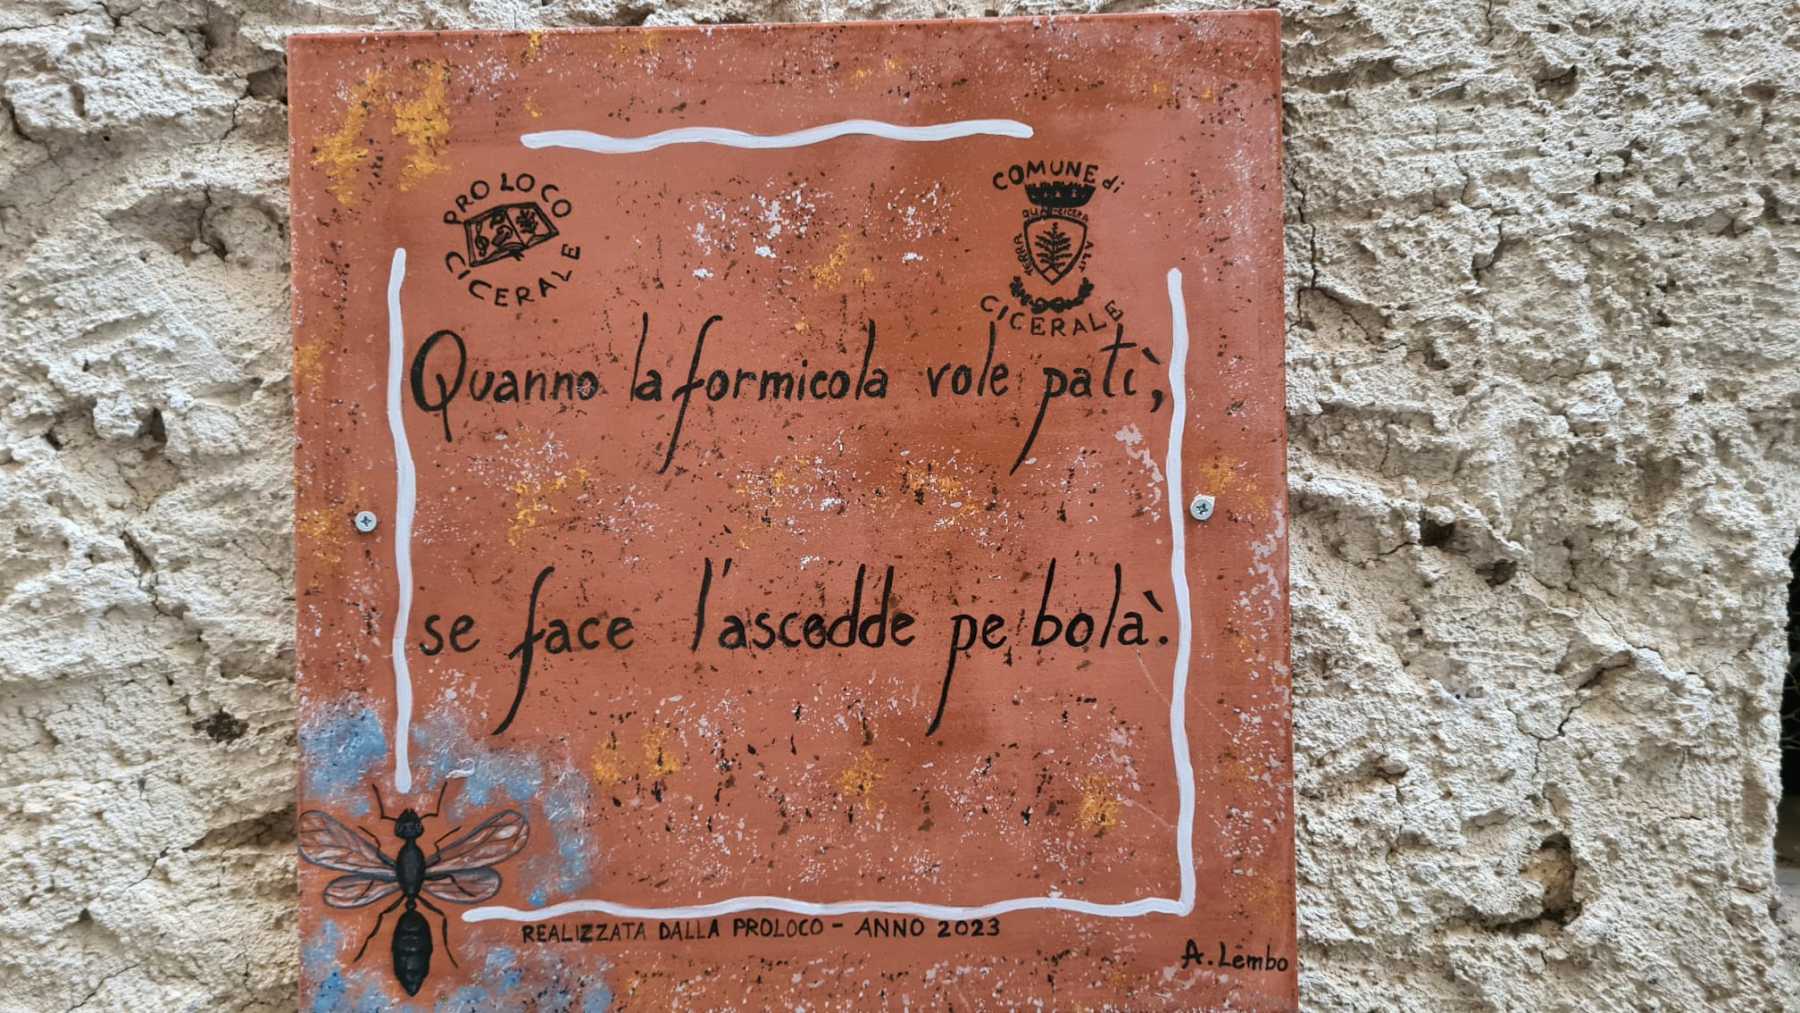 PRO LOCO
CICERALE
COMUNE di
TERRA QUAE CICERA ALIT
CICERALE
Quanno la formicola vole patì,
se face l'ascedde pe bolà.
REALIZZATA DALLA PROLOCO - ANNO 2023
A. Lembo